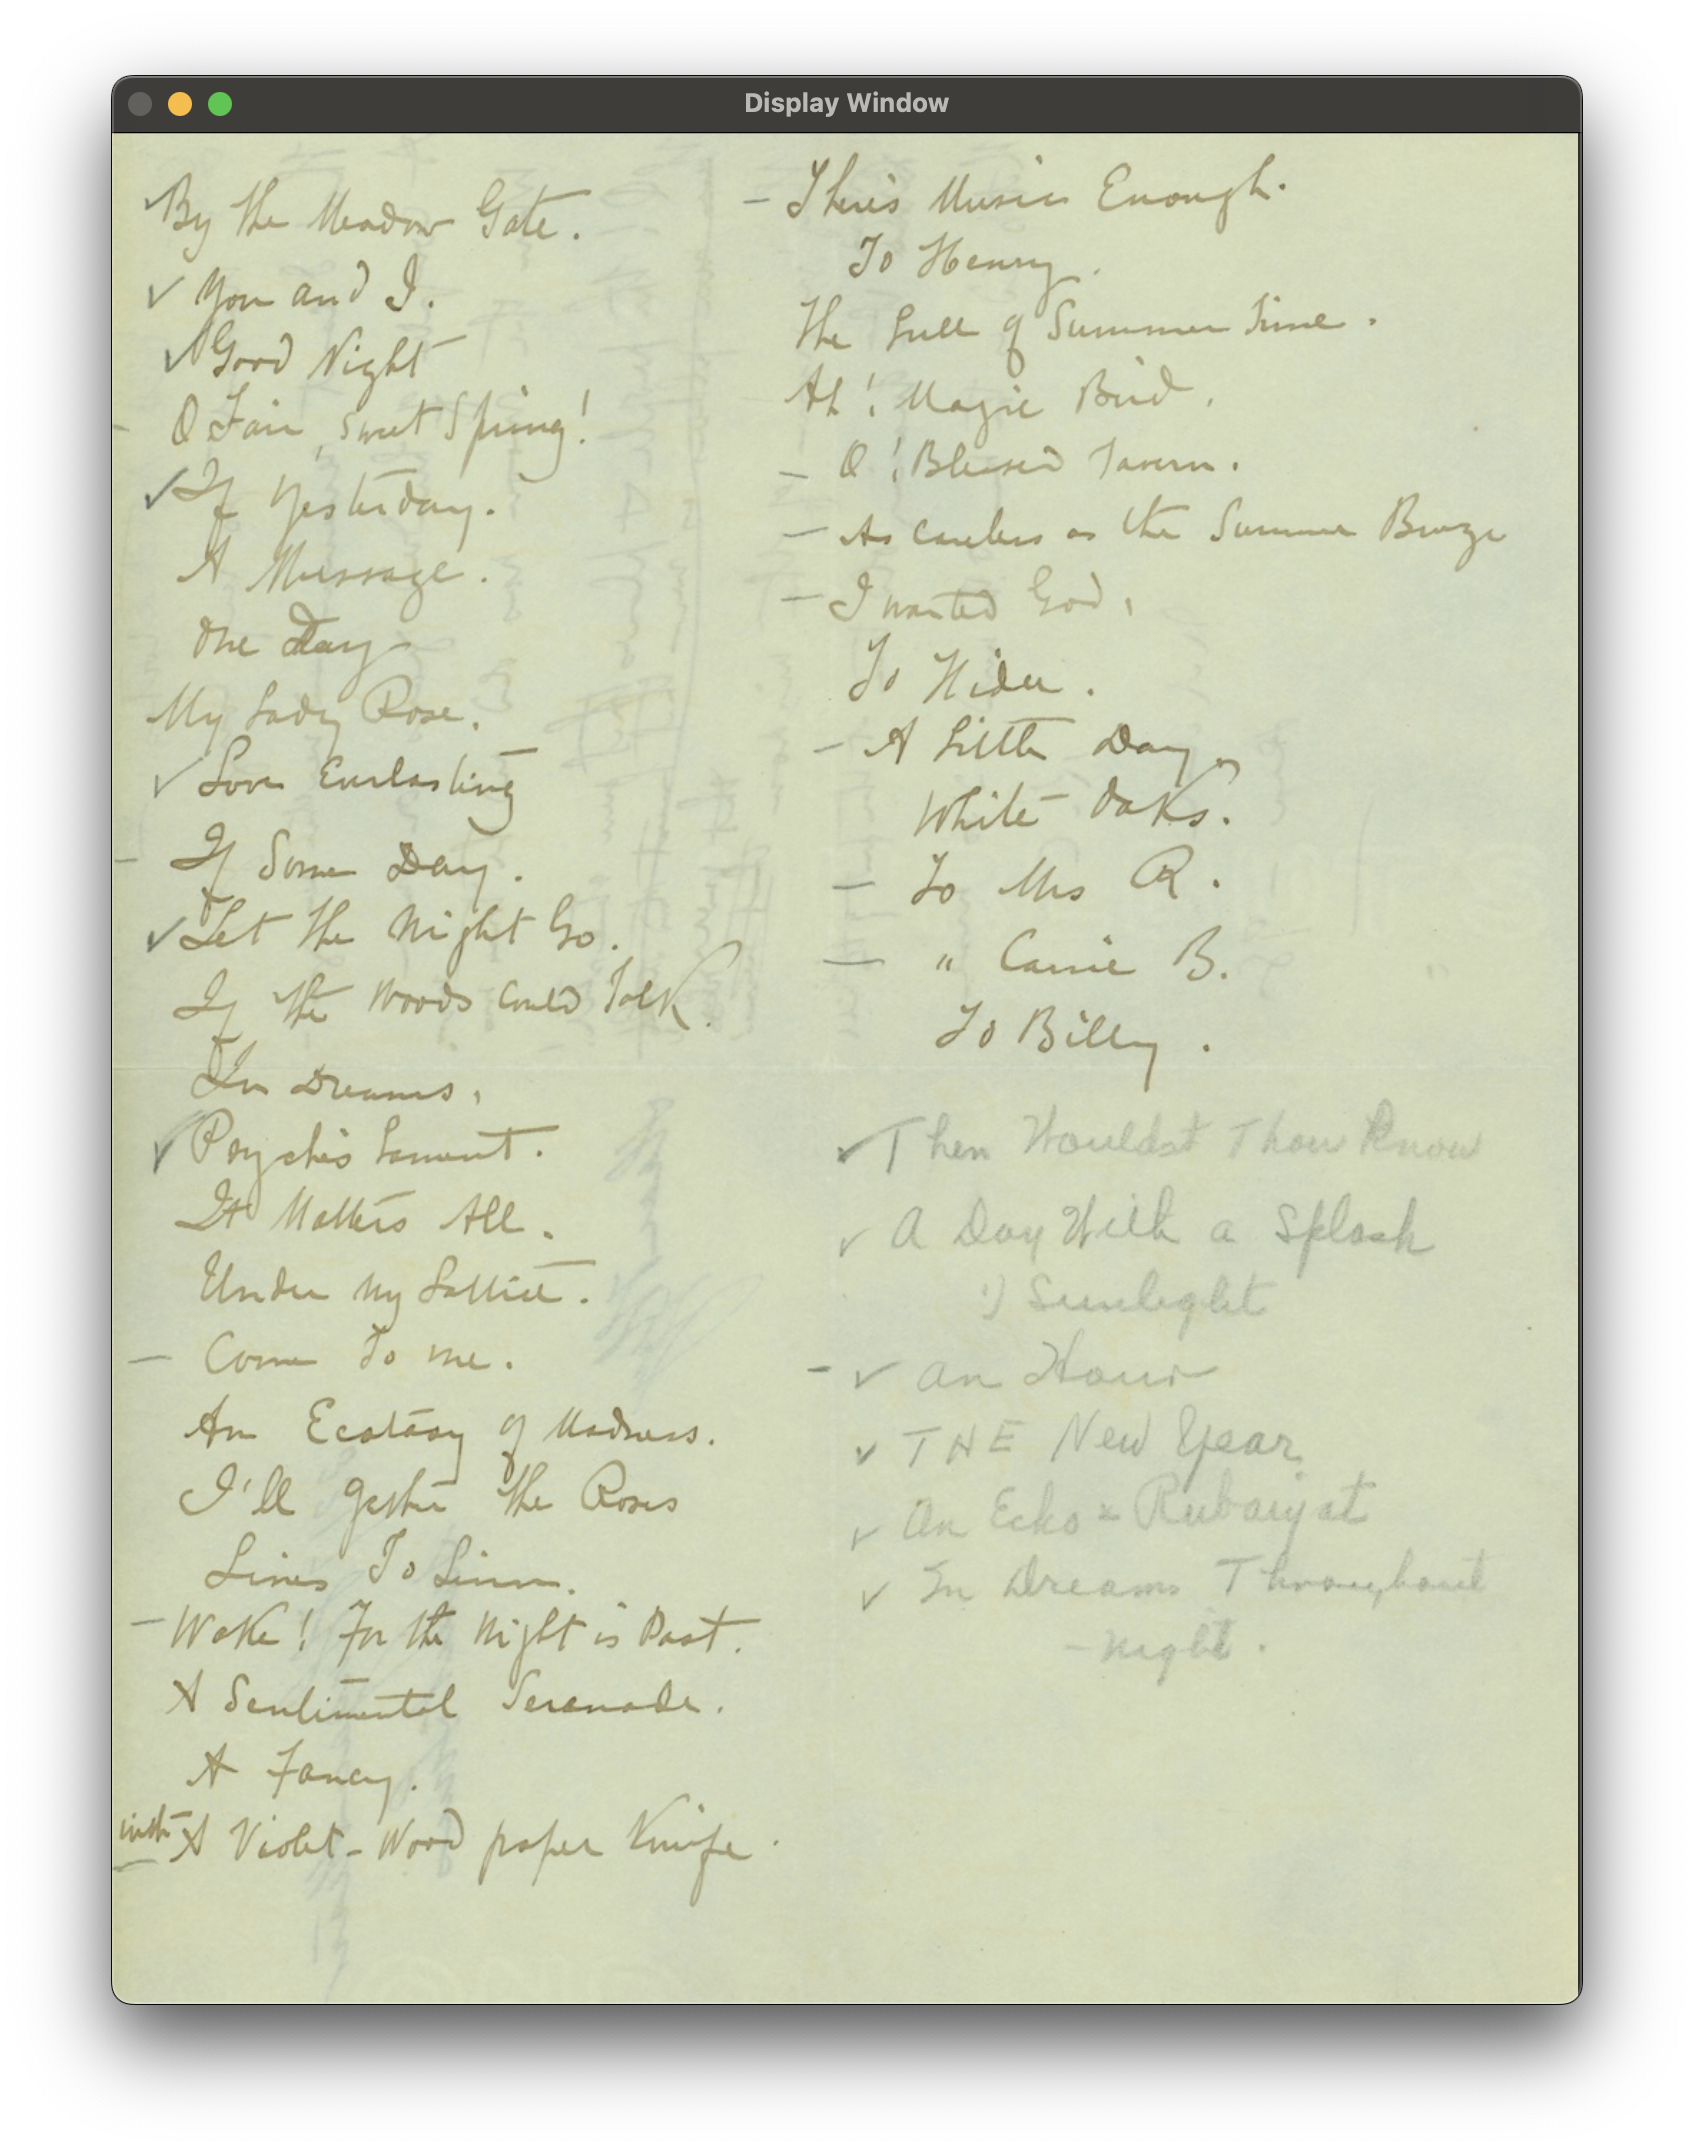 Display Window
By the Meadow Gate.
✓ You and I.
✓ Good Night
O Fair, sweet Spring!
✓ If Yesterday.
A Message.
One Day
My Lady Rose.
✓ Love Everlasting
– If Some Day.
✓ Let the Night Go.
If the Woods Could Talk.
In Dreams.
✓ Psyche's Lament.
It Matters All.
Under my Lattice.
– Come to me.
An Ecstasy of Madness.
I'll gather the Roses
Lines To Linn.
– Wake! For the Night is Past.
A Sentimental Serenade.
A Fancy.
with A Violet-Wood paper Knife.
– There's Music Enough.
To Henry.
The Lull of Summer Time.
Ah! Magic Bird.
– O! Blessed Tavern.
– As careless as the Summer Breeze
– I wanted God.
To
– A Little Day.
White Oaks.
– To Mrs R.
– " Carrie B.
To Billy.
✓ Then Wouldst Thou Know
✓ A Day With a Splash
of Sunlight
– ✓ An Hour
✓ THE New Year
✓ An Echo Rubaiyat
✓ In Dreams Throughout
– Night.